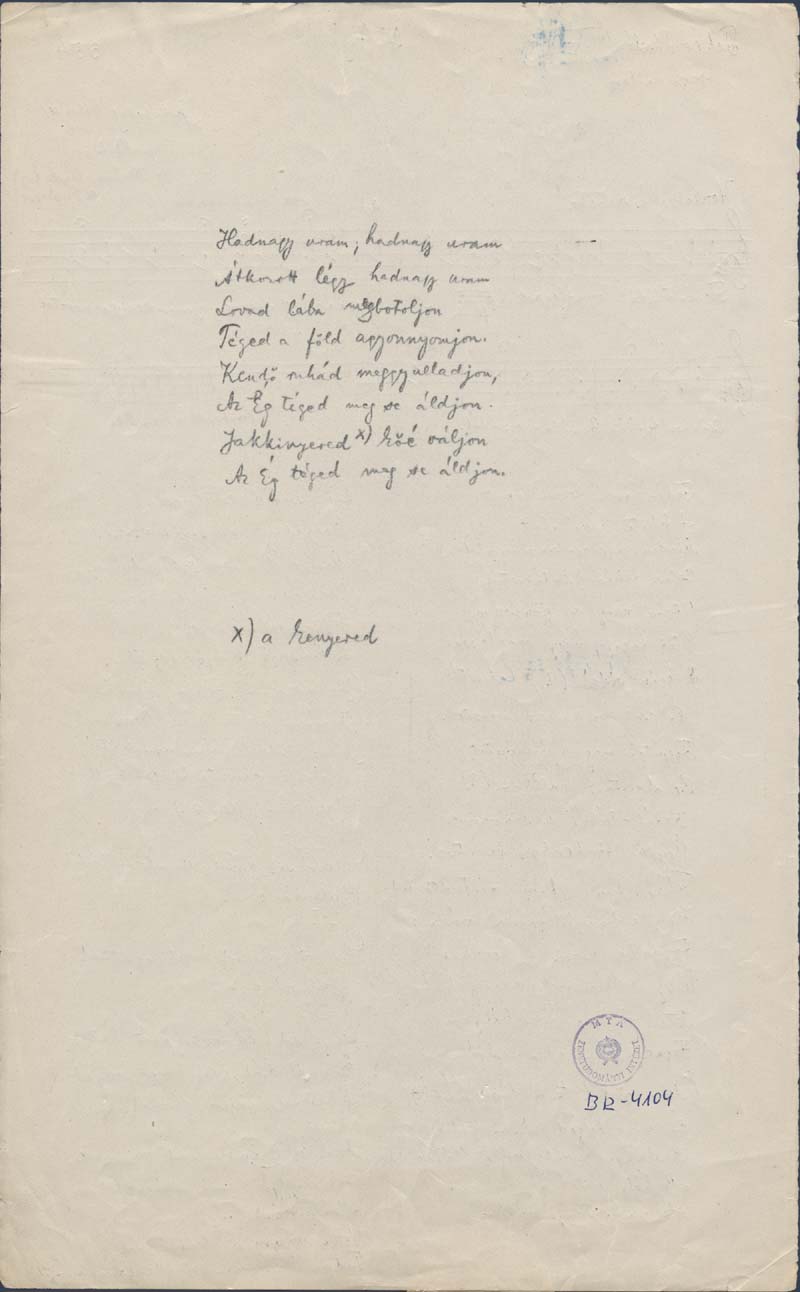 Hadnagy uram, hadnagy uram
Átkozott légy hadnagy uram
Lovad lába megbotoljon
Téged a föld agyonnyomjon.
Kendő ruhád meggyulladjon,
Az Ég téged meg se áldjon.
Jakkinyered x) kőé váljon
Az Ég téged meg se áldjon.
x) a kenyered
MTA
ZENETUDOMÁNYI INTÉZET
BR-4104